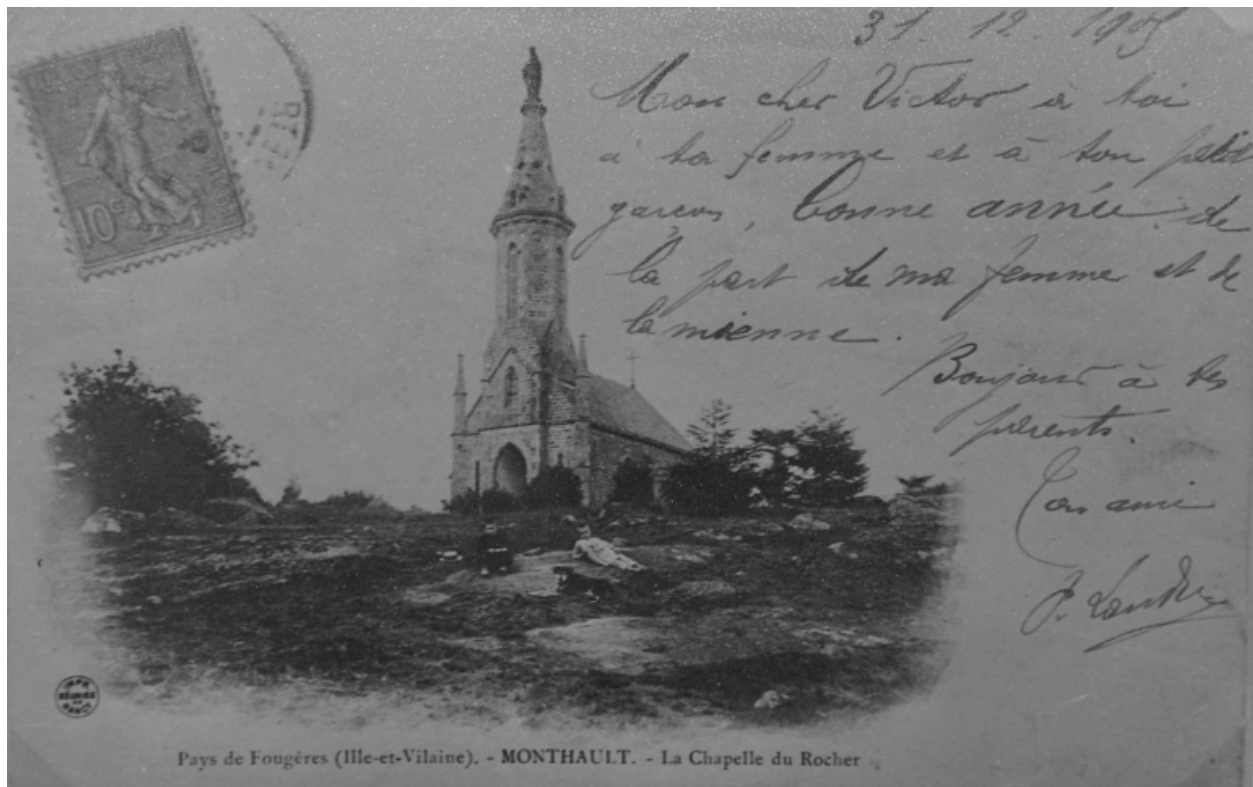 31. 12. 1905
Mon cher Victor à toi
à ta femme et à ton petit
garçon, bonne année de
la part de ma femme et de
la mienne.
Bonjour à tes
parents.
Ton ami
10c
IMP. RÉUNIES DE NANCY
Pays de Fougères (Ille-et-Vilaine). - MONTHAULT. - La Chapelle du Rocher